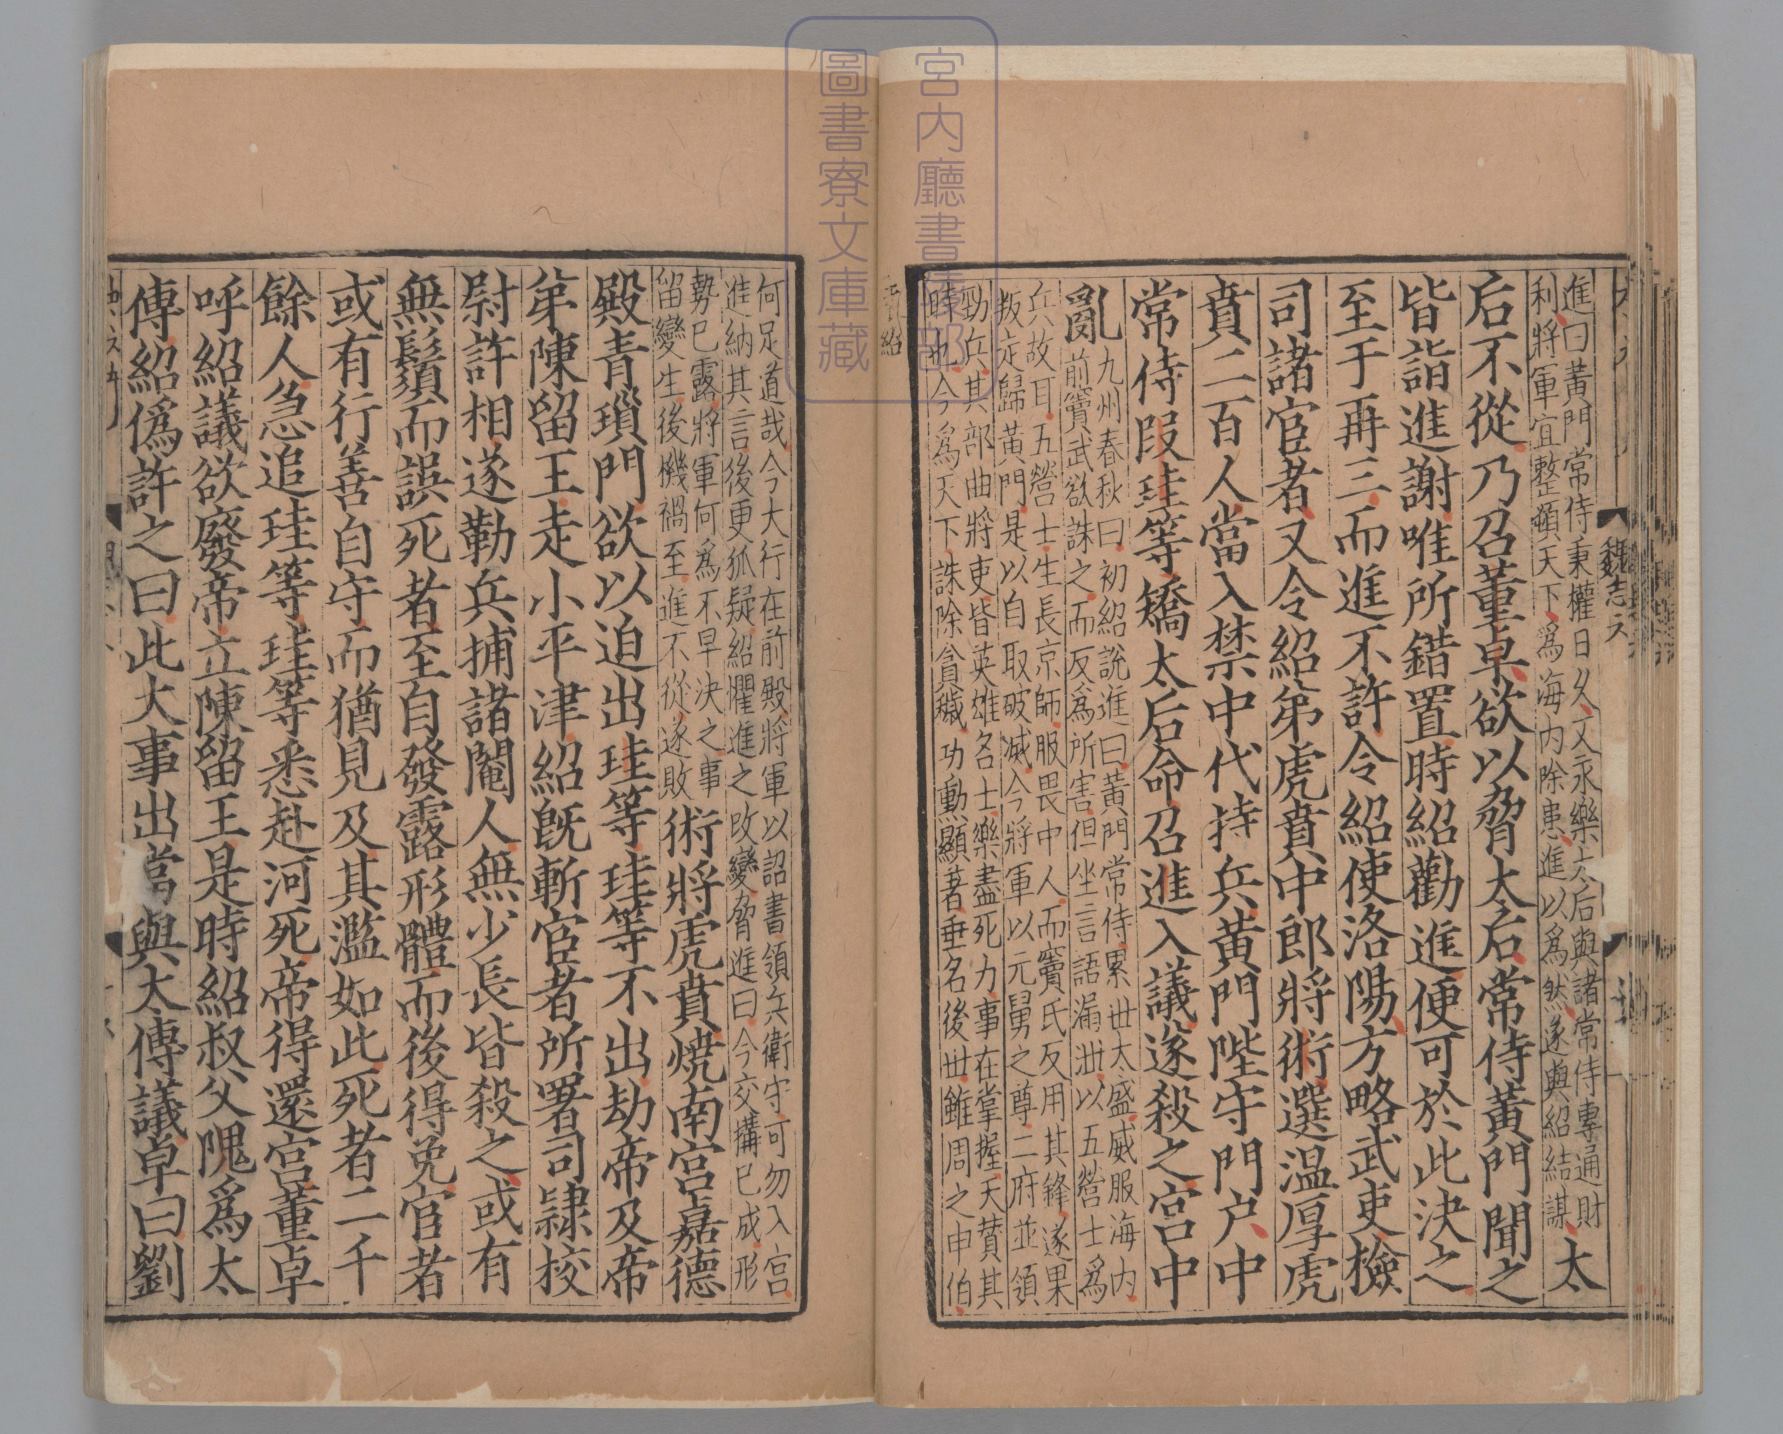 進曰黃門常侍秉權日久又永樂太后與諸常侍專通財
利將軍宜整頓天下爲海内除患進以爲然遂與紹結謀
太
后不從乃召董卓欲以脅太后常侍黃門聞之
皆詣進謝唯所錯置時紹勸進便可於此決之
至于再三而進不許令紹使洛陽方略武吏檢
司諸宦者又令紹弟虎賁中郎將術選温厚虎
賁二百人當入禁中代持兵黃門陛守門户中
常侍段珪等矯太后命召進入議遂殺之宮中
亂
九州春秋曰初紹說進曰黃門常侍累世太盛威服海内
前竇武欲誅之而反爲所害但坐言語漏泄以五營士爲
兵故耳五營士生長京師服畏中人而竇氏反用其鋒遂果
叛走歸黃門是以自取破滅今將軍以元舅之尊二府並領
勁兵其部曲將吏皆英雄名士樂盡死力事在掌握天贊其
時也今爲天下誅除貪穢功勳顯著垂名後世雖周之申伯
魏志六
何足道哉今大行在前殿將軍以詔書領兵衛守可勿入宮
進納其言後更狐疑紹懼進之改變脅進曰今交搆已成形
勢已露將軍何爲不早決之事
留變生後機禍至進不從遂敗
術將虎賁燒南宮嘉德
殿青瑣門欲以迫出珪等珪等不出劫帝及帝
弟陳留王走小平津紹旣斬宦者所署司隷校
尉許相遂勒兵捕諸閹人無少長皆殺之或有
無鬚而誤死者至自發露形體而後得免宦者
或有行善自守而猶見及其濫如此死者二千
餘人急追珪等珪等悉赴河死帝得還宮董卓
呼紹議欲廢帝立陳留王是時紹叔父隗爲太
傅紹僞許之曰此大事出當與太傅議卓曰劉
宮内廳書陵部
圖書寮文庫藏